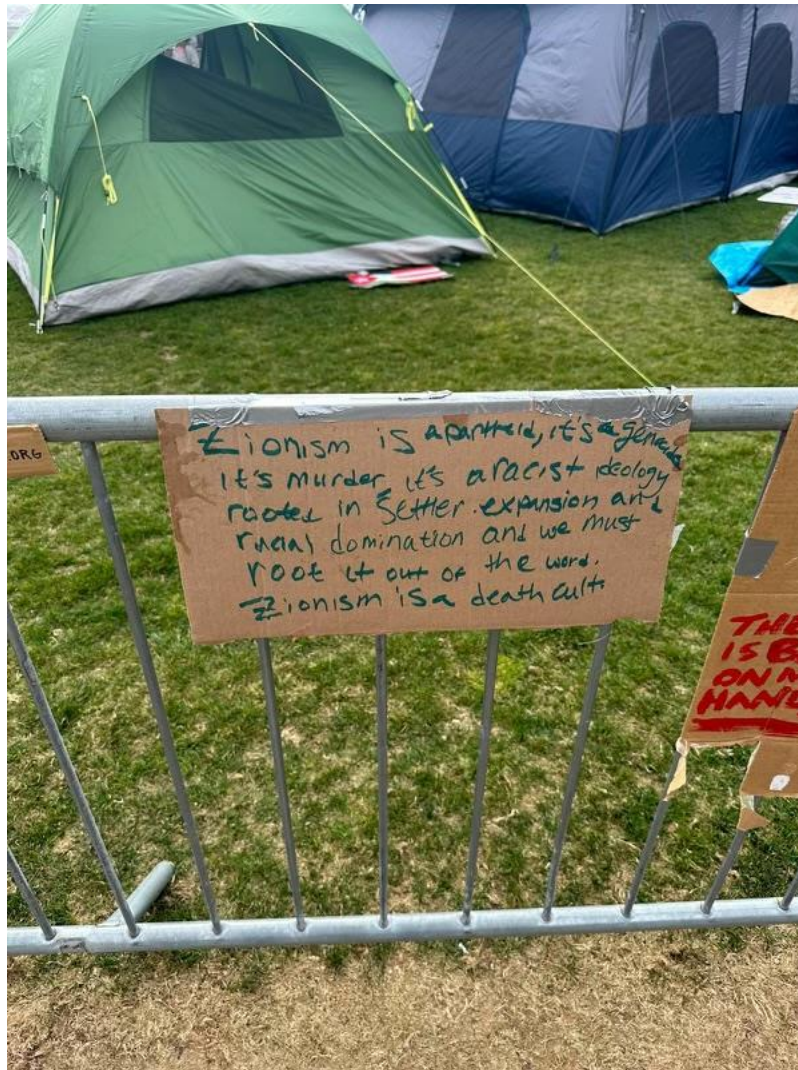 ORG
Zionism is apartheid, it's a genocide
it's murder, it's a racist ideology
rooted in settler expansion and
racial domination and we must
root it out of the word.
Zionism is a death cult.
THE
IS B
ON M
HAND